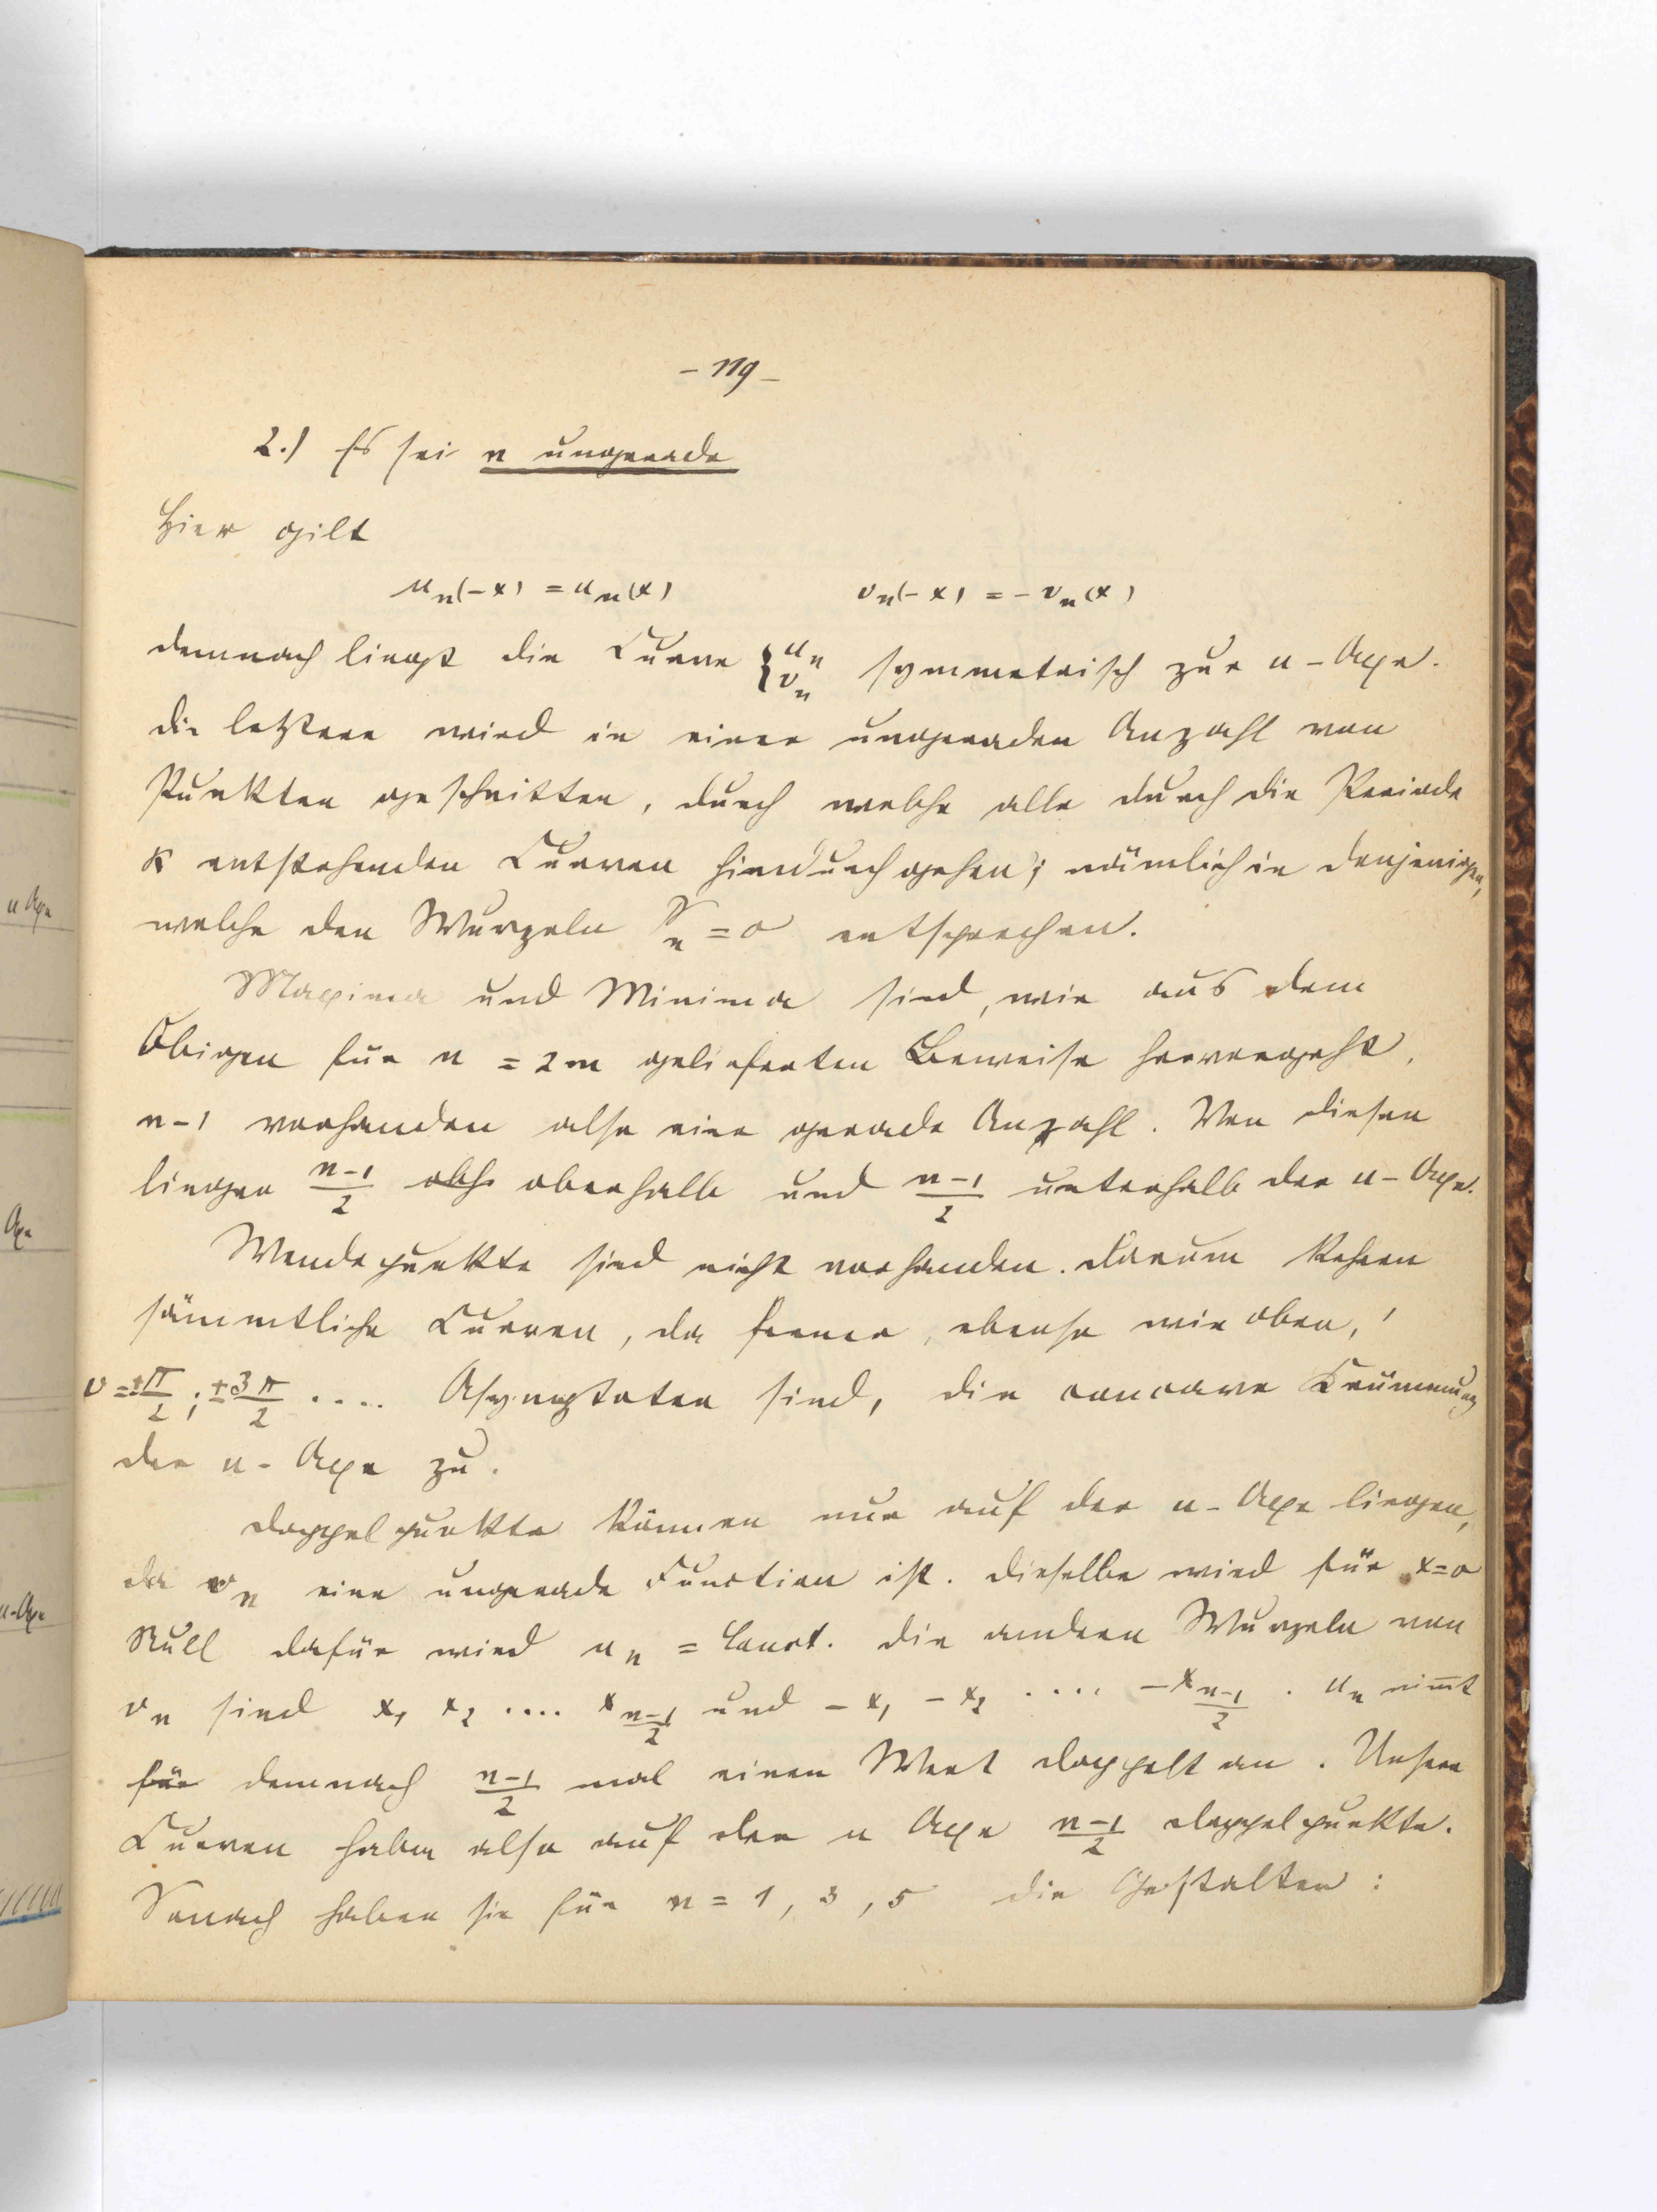 – 119 –
2.) Es sei n ungerade
Hier gilt
uₙ(-x) = uₙ(x) vₙ(-x) = -vₙ(x)
demnach liegt die Curve {uₙ vₙ symmetrisch zur u-Axe.
die letztere wird in einer ungeraden Anzahl von
Punkten geschnitten, durch welche alle durch die Periode
K entstehenden Curven hindurchgehen; nämlich in denjenigen,
welche den Wurzeln Sₙ = 0 entsprechen.
Maxima und Minima sind, wie aus dem
Obigen für n = 2m gelieferten Beweise hervorgeht,
n-1 vorhanden also eine gerade Anzahl. Von diesen
liegen (n-1)/2 oberhalb und (n-1)/2 unterhalb der u-Axe.
Wendepunkte sind nicht vorhanden. Darum kehren
sämmtliche Curven, da ferner, ebenso wie oben,
v = ±π/2; ±3π/2 .... Asymptoten sind, die concave Krümmung
der u-Axe zu.
Doppelpunkte können nur auf der u-Axe liegen,
da vₙ eine ungerade Function ist. Dieselbe wird für x=0
Null dafür wird uₙ = Const. Die andern Wurzeln von
vₙ sind x₁ x₂ .... x_{(n-1)/2} und -x₁ -x₂ .... -x_{(n-1)/2}. uₙ nim̅t
für demnach (n-1)/2 mal einen Wert doppelt an. Unsere
Curven haben also auf der u Axe (n-1)/2 Doppelpunkte.
Sonach haben sie für n = 1, 3, 5 die Gestalten:
u Axe
Axe
u-Axe